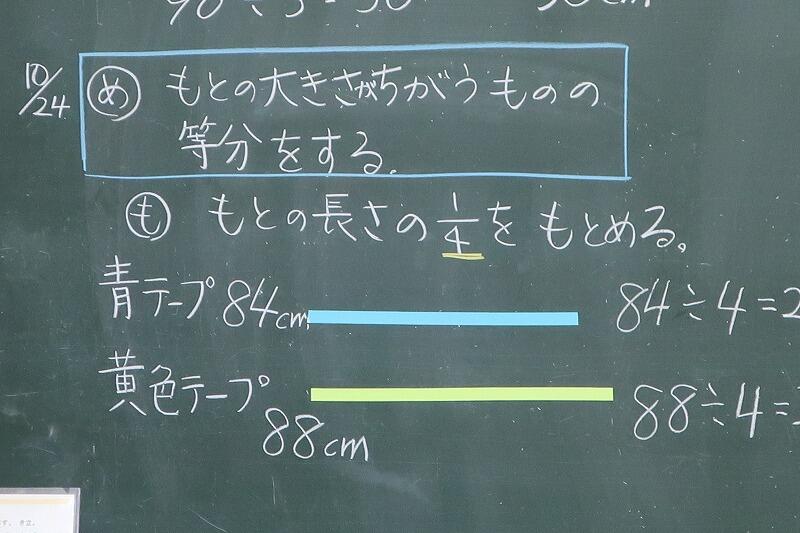 10/24
め もとの大きさがちがうものの
等分をする.
も もとの長さの1/4をもとめる。
青テープ84cm 84÷4=2
黄色テープ 88÷4=
88cm